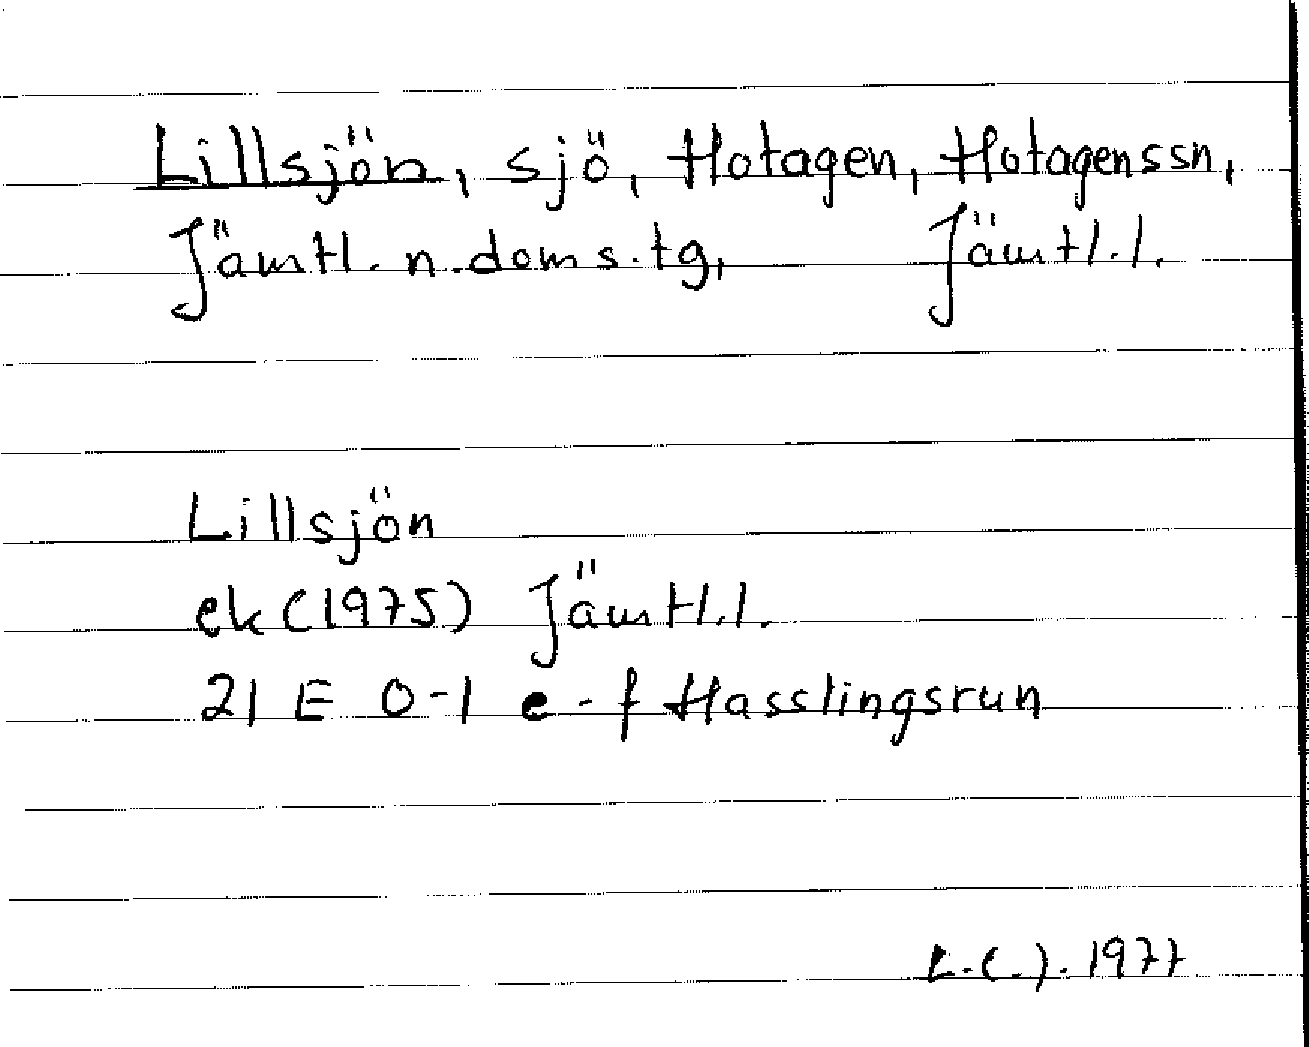 Lillsjön, sjö, Hotagen, Hotagenssn,
Jämtl. n. doms. tg, Jämtl. l.
Lillsjön
ek (1975) Jämtl. l.
21 E 0-1 e-f Hasslingsrun
1977